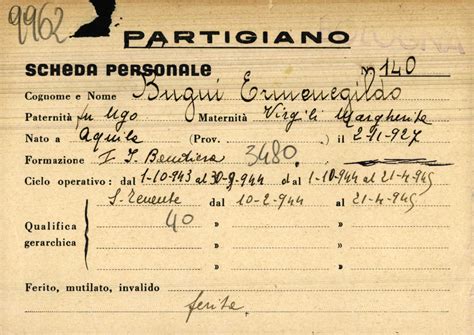 9962
PARTIGIANO
SCHEDA PERSONALE N 140
Cognome e Nome Bugni Ermenegildo
Paternità fu Ugo Maternità Virgili Margherita
Nato a Aquila (Prov. ) il 2-11-927
Formazione I G Bandiera 3480
Ciclo operativo: dal 1-10-943 al 30-9-944 dal 1-10-944 al 21-4-945
S. Tenente dal 10-2-944 al 21-4-945
Qualifica gerarchica 40 » »
» »
» »
Ferito, mutilato, invalido
ferito